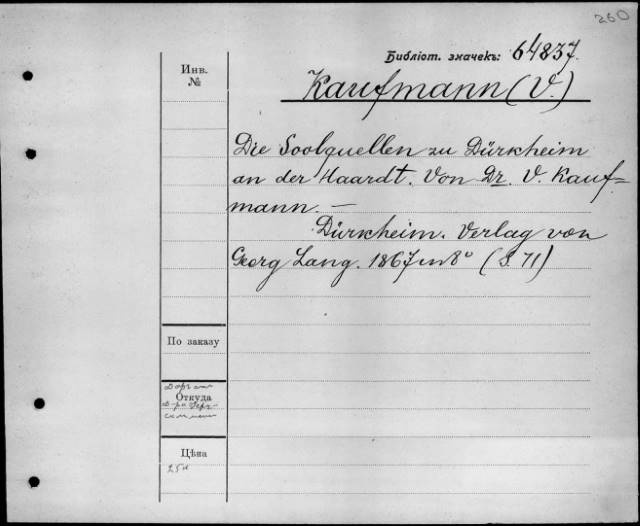 260
Библіот. значекъ: 64837.
Инв.
№
Kaufmann (V.)
Die Soolquellen zu Dürkheim
an der Haardt. Von Dr. V. Kauf=
mann. —
Dürkheim. Verlag von
Georg Lang. 1867 in 8° (S. 71)
По заказу
Откуда
Д-ра
Цѣна
25